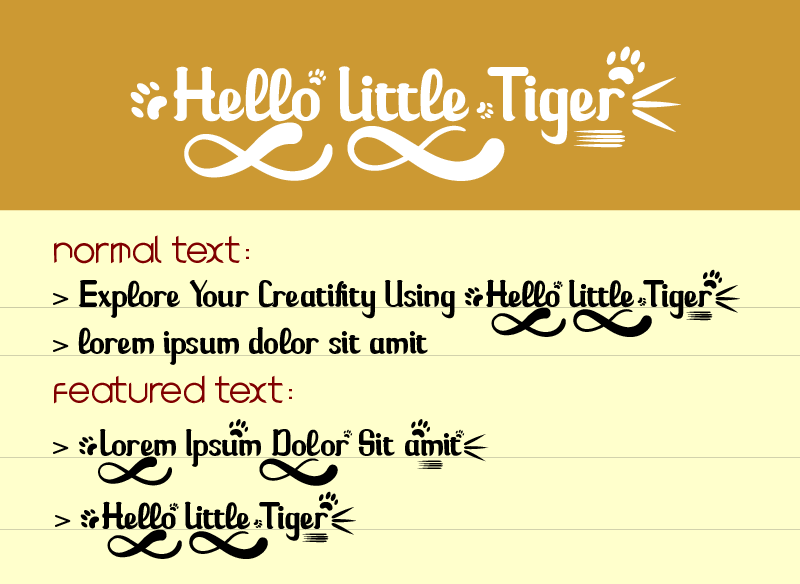 Hello Little Tiger
normal text:
> Explore Your Creatifity Using Hello Little Tiger
> lorem ipsum dolor sit amit
featured text:
> Lorem Ipsum Dolor Sit amit
> Hello Little Tiger